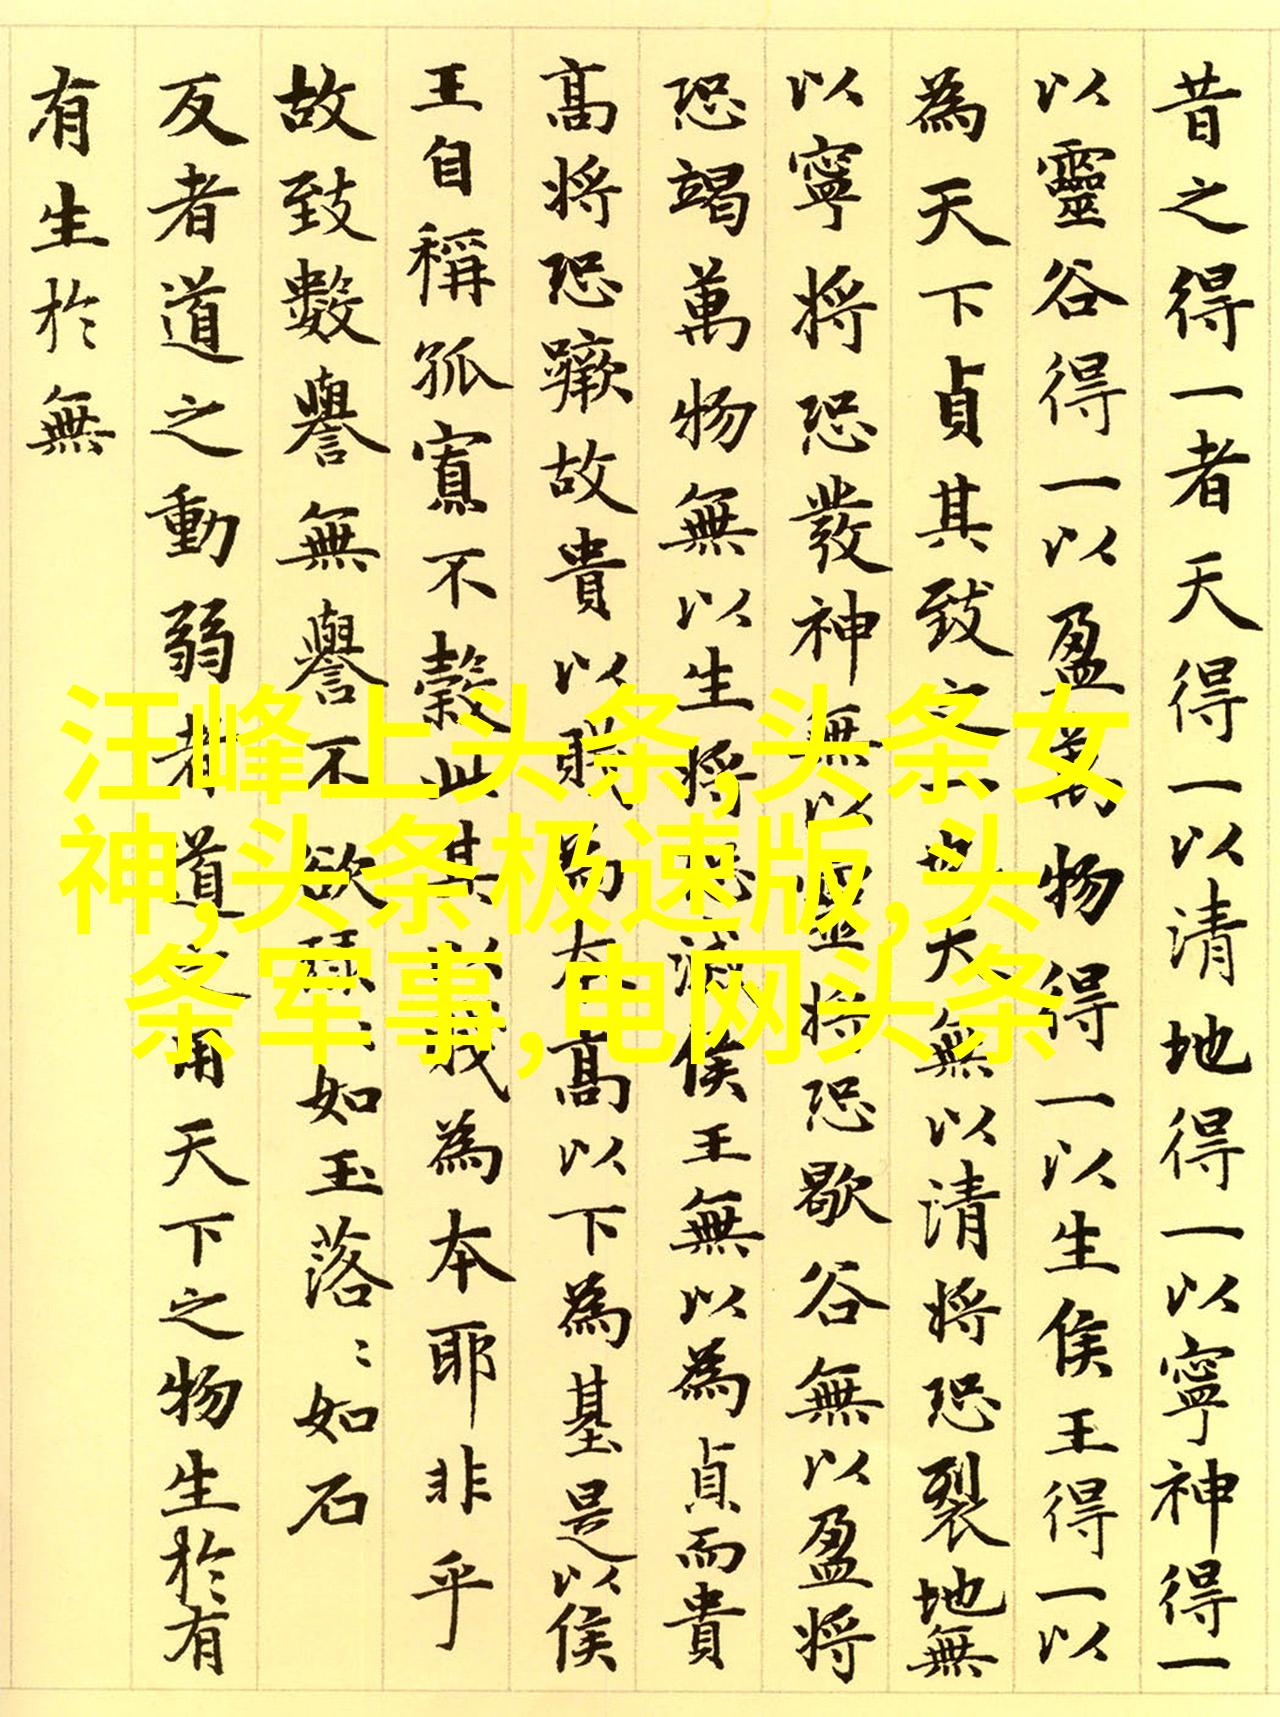 昔之得一者天得一以清地得一以寧神得一
以靈谷得一以盈萬物得一以生侯王得一以
為天下貞其致之一也天無以清將恐裂地無
以寧將恐發神無以靈將恐歇谷無以盈將
恐竭萬物無以生將恐滅侯王無以為貞而貴
高將恐蹶故貴以賤為本高以下為基是以侯
王自稱孤寡不穀此其以賤為本耶非乎
故致數譽無譽不欲琭〻如玉落〻如石
反者道之動弱者道之用天下之物生於有
有生於無
汪峰上头条,头条女
神,头条极速版,头
条军事,电网头条